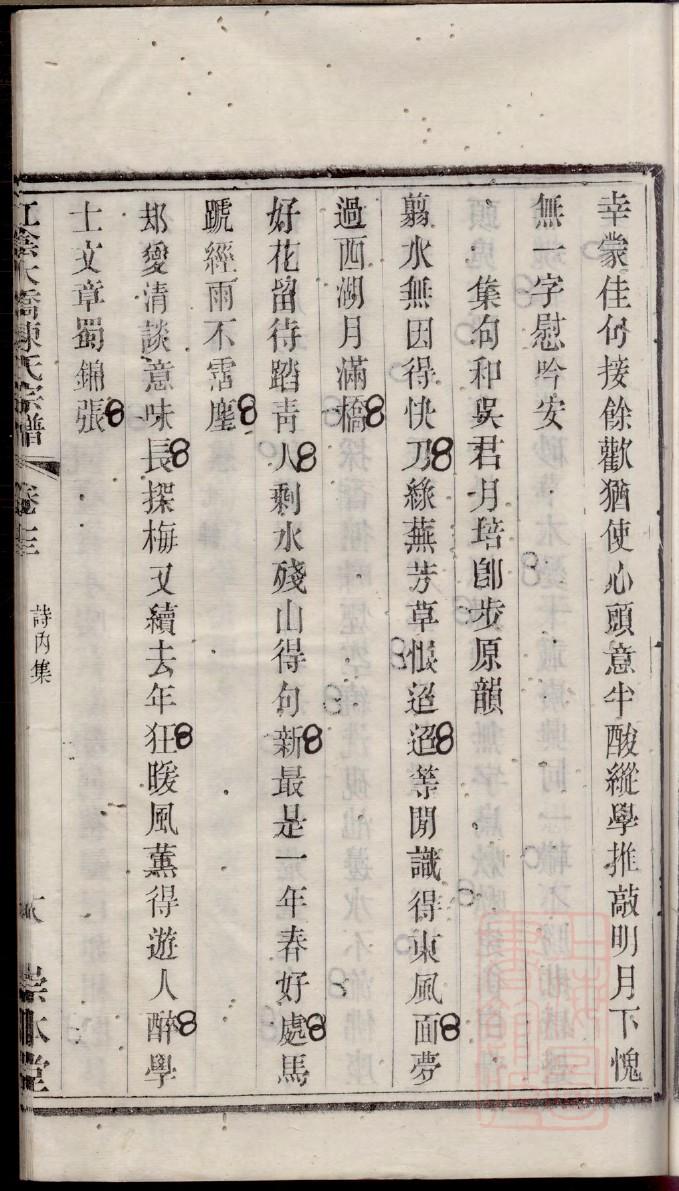 幸蒙佳句接餘歡猶使心頭意半酸縱學推敲明月下愧
無一字慰吟安
集句和吳君月培卽步原韻
翦水無因得快刀綠蕪芳草恨迢迢等閒識得東風面夢
過西湖月滿橋
好花留待踏靑人剩水殘山得句新最是一年春好處馬
蹏經雨不霑塵
却變清談意味長探梅又續去年狂暖風薰得遊人醉學
士文章蜀錦張
江陰大橋陳氏宗譜
卷十三
詩內集
崇本堂